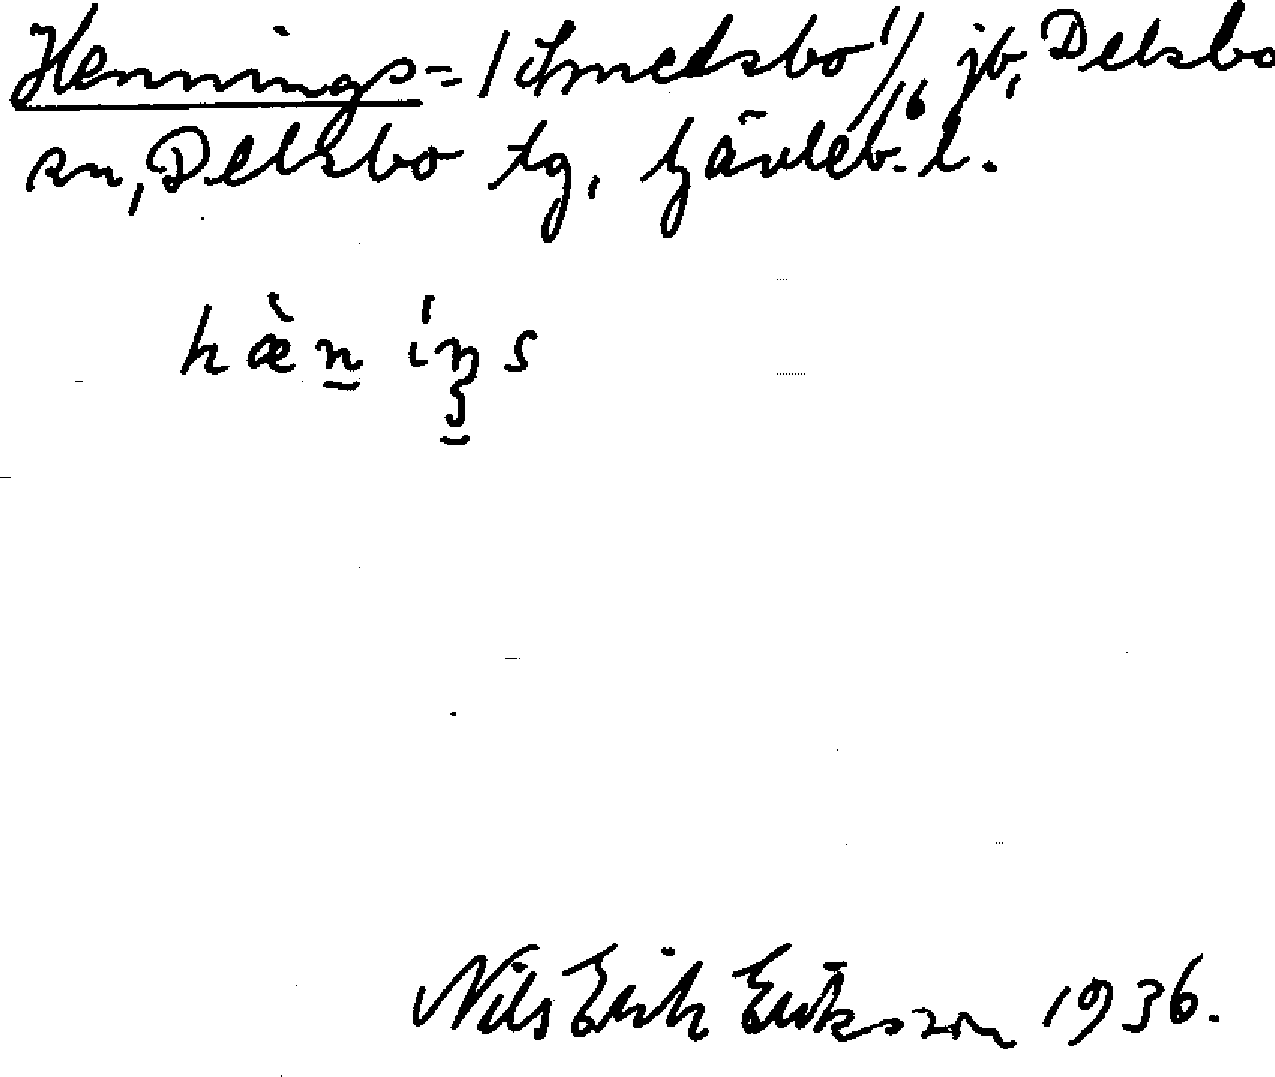 Hennings= / Smedsbo 1/16 jb, Delsbo
sn, Delsbo tg, Gävleb. l.
hæ̀n̲ íŋs
Nils Erik Eriksson 1936.